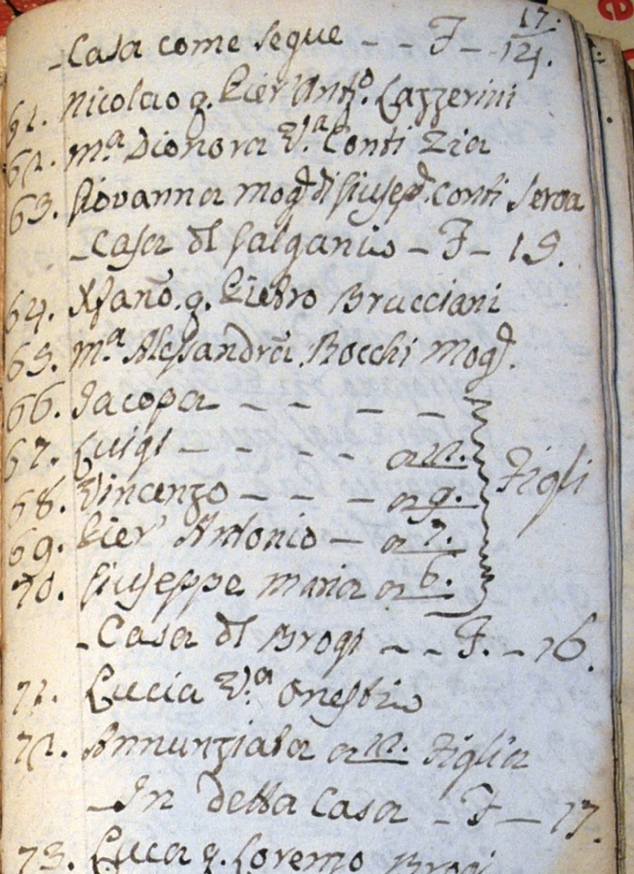 17.
Casa come segue - - F - 14.
61. Nicolao q. Pier Ant.o Lazzerini
62. M.a Dionora V.a Conti Zia
63. Giovanna mog. di Giusep. Conti Serva
Casa dl Galganio - F - 15.
64. Xfano. q. Pietro Brucciani
65. M.a Alessandra Rocchi Mog.
66. Jacopa - - - -
67. Luigi - - - - a 12. Figli
68. Vincenzo - - - a 9.
69. Pier Antonio - a 7.
70. Giuseppe Maria a 6.
- Casa dl Brogi - - F. - 16.
71. Lucia V.a Onestio
72. Annunziata a 12. Figlia
- In detta Casa - F - 17.
73. Luca q. Lorenzo Brogi